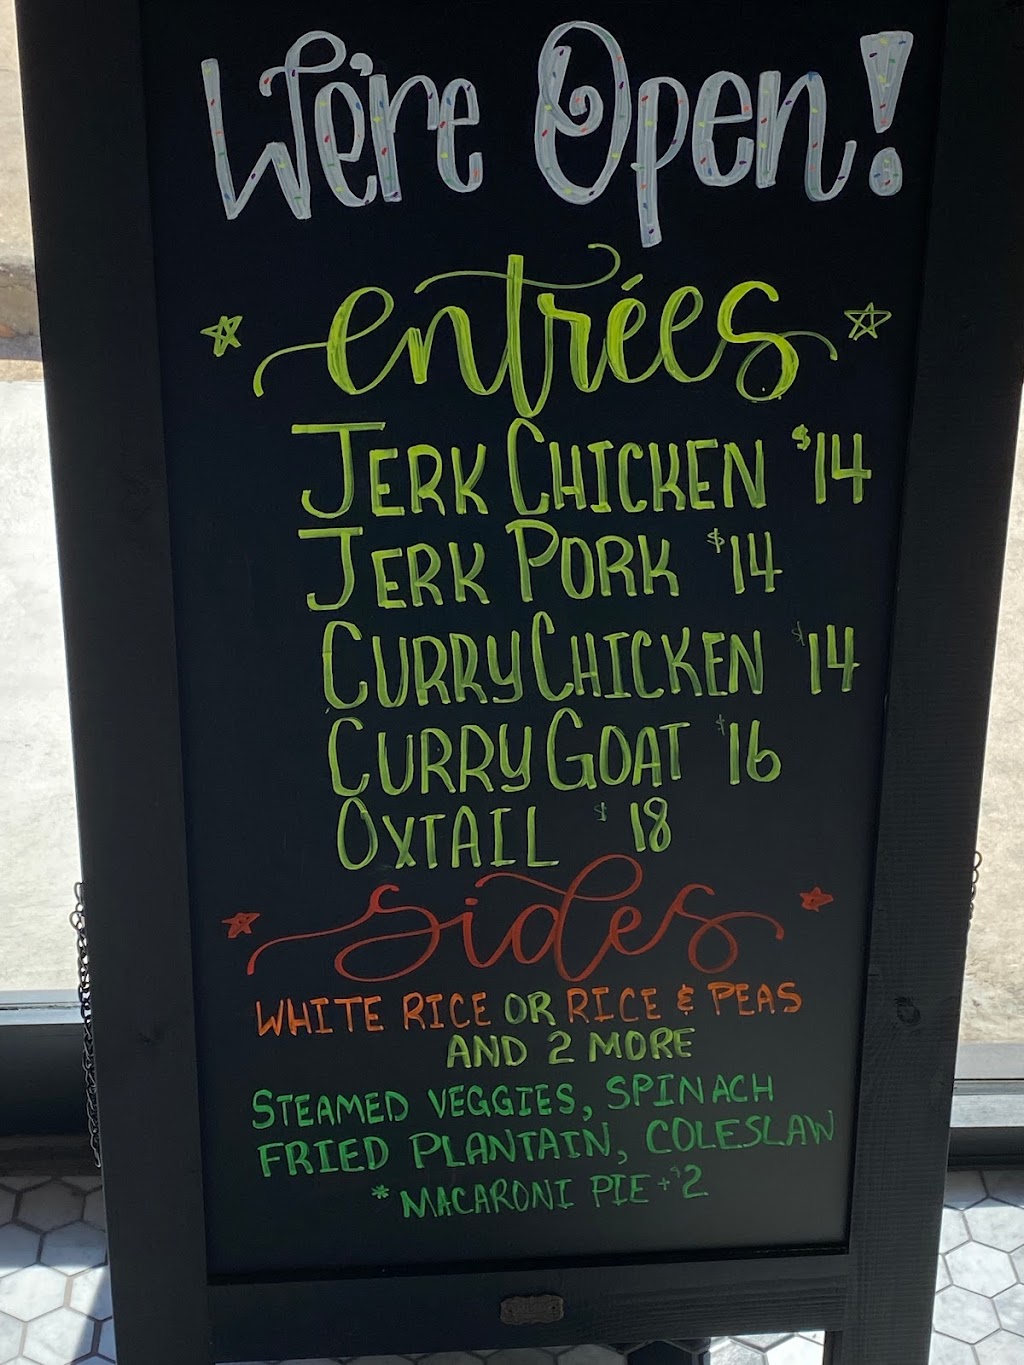 We're Open!
entrées
JERK CHICKEN $14
JERK PORK $14
CURRY CHICKEN $14
CURRY GOAT $16
OXTAIL $18
sides
WHITE RICE OR RICE & PEAS
AND 2 MORE
STEAMED VEGGIES, SPINACH
FRIED PLANTAIN, COLESLAW
* MACARONI PIE + $2